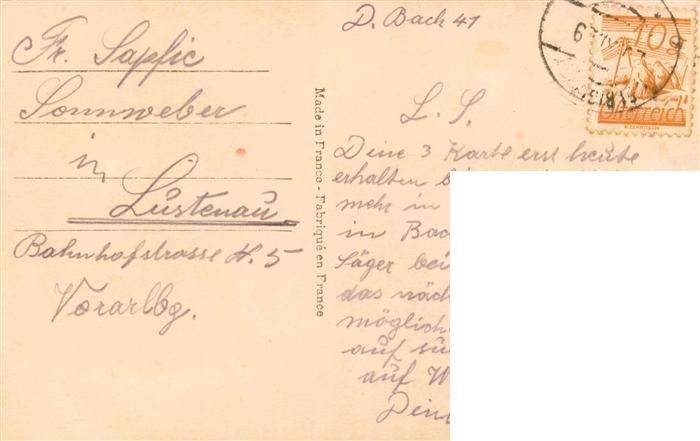 Fr. Sapfie
Sonnweber
in
Lustenau
Bahnhofstrasse H. 5
Vorarlbg.
Made in France - Fabriqué en France
D. Bach 41
L. S.
Dine 3 Karte erst heute
erhalten
mehr in
in Bac
Jäger bei
das näch
möglich
auf
auf W
Dein
10g
Österreich